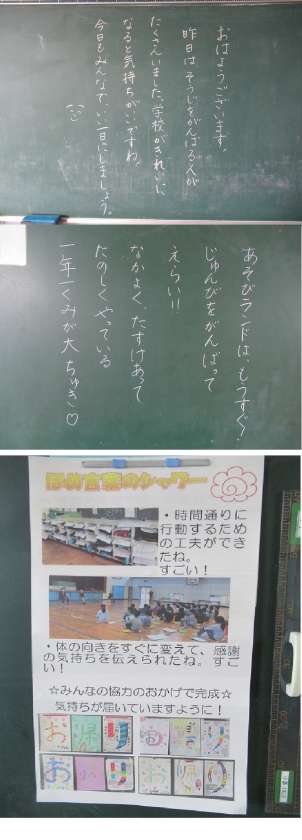 おはようございます。
昨日は、そうじをがんばる人が
たくさんいました。学校がきれいに
なると気持ちがいいですね。
今日もみんなで、いい一日にしましょう。
あそびランドは、もうすぐ!
じゅんびをがんばって
えらい!!
なかよく、たすけあって
たのしくやっている
一年一くみが大ちゅき♡
誉め言葉のシャワー
・時間通りに
行動するため
の工夫ができ
たね。
すごい!
・体の向きをすぐに変えて、感謝
の気持ちを伝えられたね。すご
い!
☆みんなの協力のおかげで完成☆
気持ちが届いていますように!